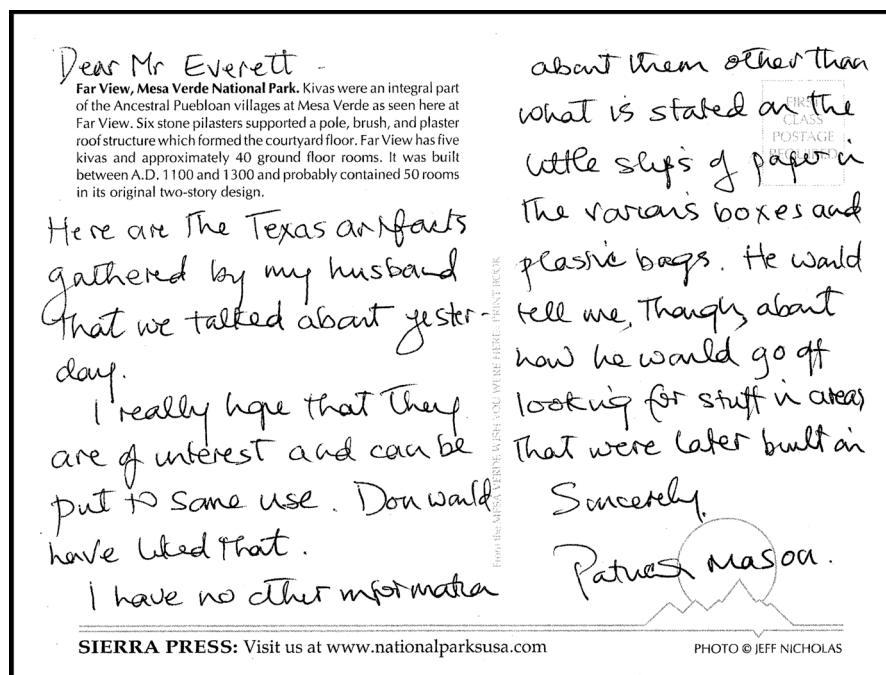 Dear Mr Everett -
Far View, Mesa Verde National Park. Kivas were an integral part
of the Ancestral Puebloan villages at Mesa Verde as seen here at
Far View. Six stone pilasters supported a pole, brush, and plaster
roof structure which formed the courtyard floor. Far View has five
kivas and approximately 40 ground floor rooms. It was built
between A.D. 1100 and 1300 and probably contained 50 rooms
in its original two-story design.
Here are the Texas artifacts
gathered by my husband
that we talked about yester-
day.
I really hope that they
are of interest and can be
put to some use. Don would
have liked that.
I have no other information
about them other than
what is stated on the
little slips of paper in
the various boxes and
plastic bags. He would
tell me, though, about
how he would go off
looking for stuff in areas
that were later built on
Sincerely,
Mason.
FIRST
CLASS
POSTAGE
REQUIRED
From the MESA VERDE WISH YOU WERE HERE PRINT BOOK
SIERRA PRESS: Visit us at www.nationalparksusa.com
PHOTO © JEFF NICHOLAS